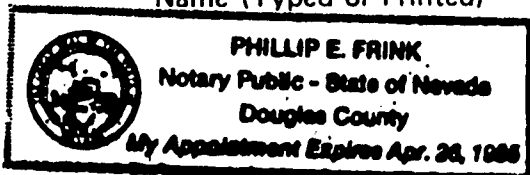 Name (Typed or Printed)
PHILLIP E. FRINK
Notary Public - State of Nevada
Douglas County
My Appointment Expires Apr. 26,